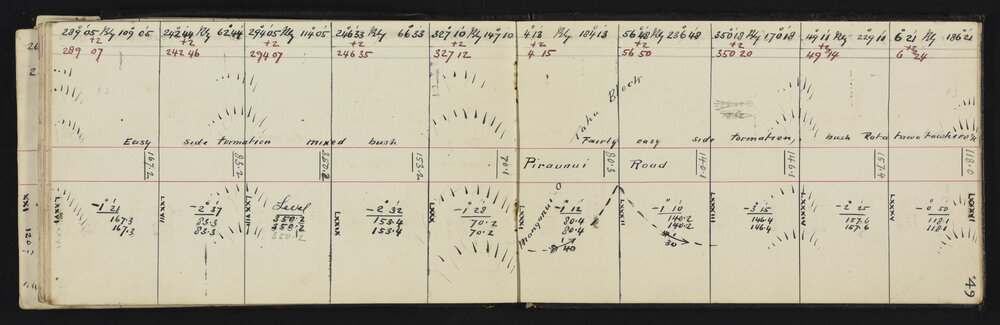 289°05' Rly 109°05
242°44' Rly 62°44'
294°05 Rly 114°05
246°33 Rly 66°33
327°10 Rly 147°10
4°13 Rly 184°13
56°48 Rly 236°48
350°18 Rly 170°18
49°11 Rly 229°11
6°21 Rly 186°21
+2
+2
+2
+2
+2
+2
+2
+2
289 07
242 46
294 07
246 35
327 12
4 15
56 50
350 20
49 14
6 24
Tahu Block
Easy side formation mixed bush
Fairly easy side formation, bush Rata tawa
Piraunui Road
167.2
83.2
350.2
153.2
70.1
80.3
140.1
146.1
157.4
118.0
LXXVI
LXXVII
LXXIX
LXXX
LXXXI
LXXXII
LXXXIII
LXXXIV
LXXXV
-1°21'
167.3
167.3
-2°37'
83.3
83.3
Level
350.2
350.2
350.2
-2°32
153.4
153.4
-1°28
70.2
70.2
-1°12
80.4
80.4
40
-1°10
140.2
140.2
30
-3°15
146.4
146.4
-2°25
157.6
157.6
-0°50
118.1
118.1
XXI
120.1
49